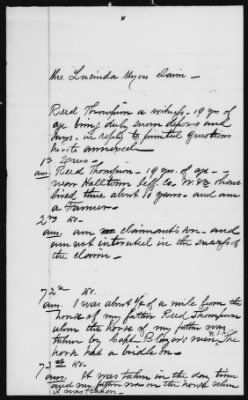 Mrs Lucinda Myers Claim —
Reed Thompson a witness. 19 yrs of
age being duly sworn deposes and
says. in reply to printed questions
hereto annexed
1st Intrg.
ans. Reed Thompson. 19 yrs. of age —
near Halltown Jeff. Co. W. Va. I have
lived there about 10 years. and am
a Farmer —
2nd do.
ans. am claimant's son. and
am not interested in the success of
the claim —
72nd do.
ans. I was about ½ of a mile from the
house of my father Reed Thompson
when the horse of my father was
taken by Capt. men. The
horse had a bridle on —
73rd do.
ans. It was taken in the day time
and my father was on the horse when
it was taken.